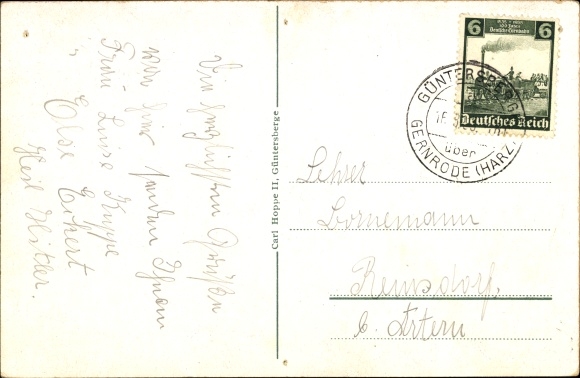 Die herzlichsten Grüße
von hier senden Ihnen
Frau Luise Kuppe
u.
Else Eckert
Heil Hitler.
Carl Hoppe II, Güntersberge
6 6
1835 - 1935
100 Jahre
Deutsche Eisenbahn
Deutsches Reich
GÜNTERSBERGE
über
GERNRODE (HARZ)
Lehrer
Bornemann
Reinsdorf
b. Artern